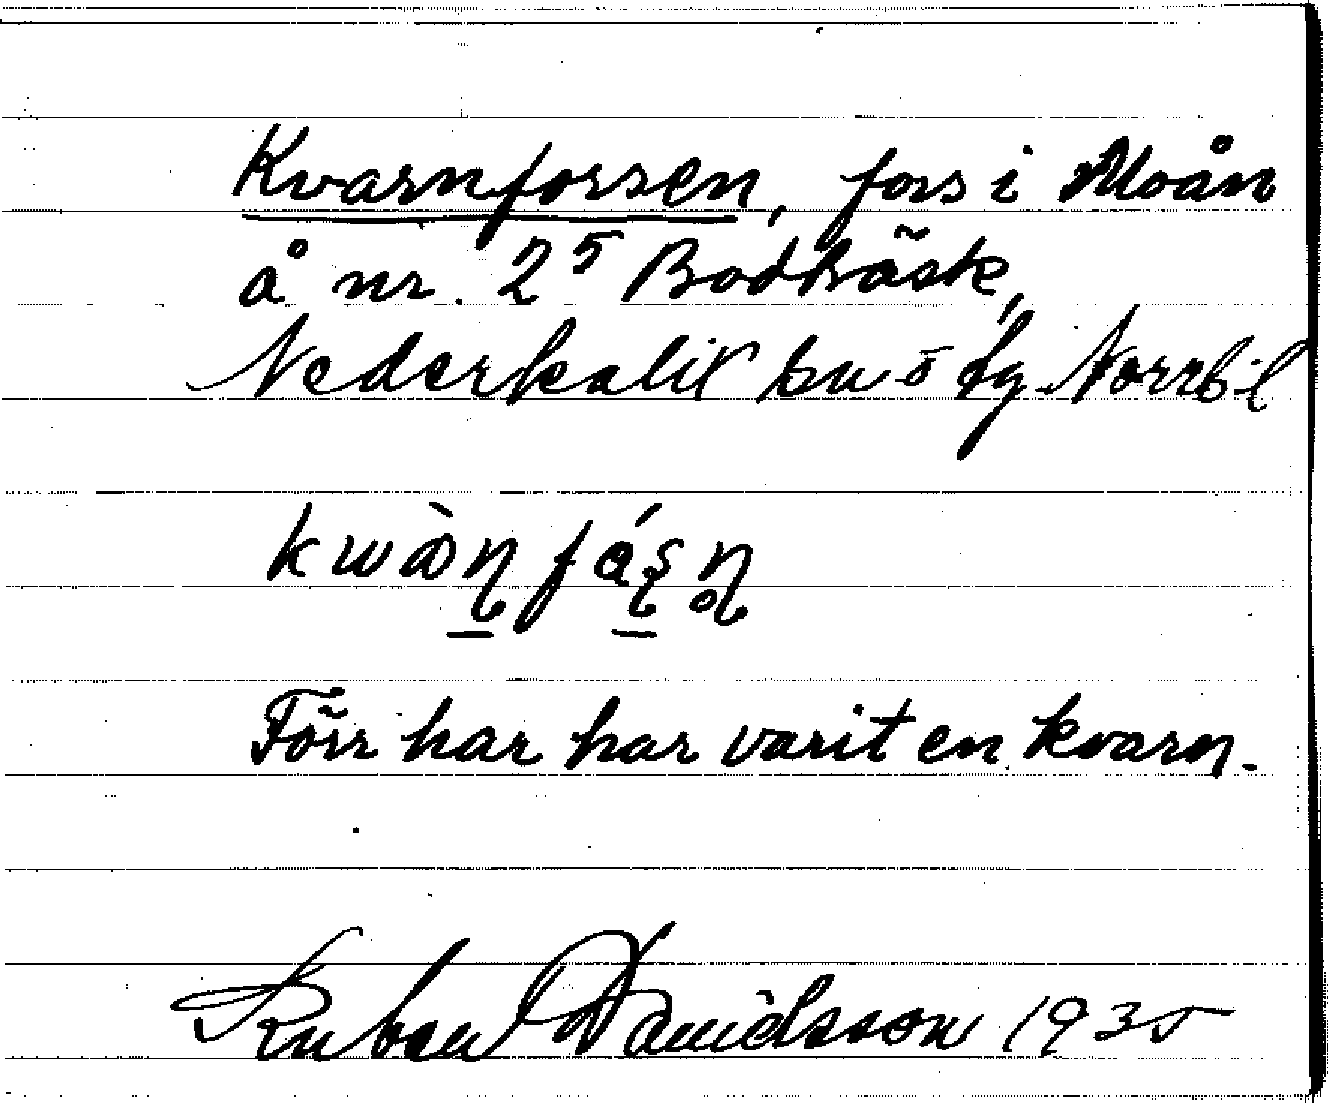 Kvarnforsen, fors i Moån
å nr. 2⁵ Bodträsk,
Nederkalix sn o fg. Norrb. l
Förr har här varit en kvarn.
Ruben Davidsson 1935